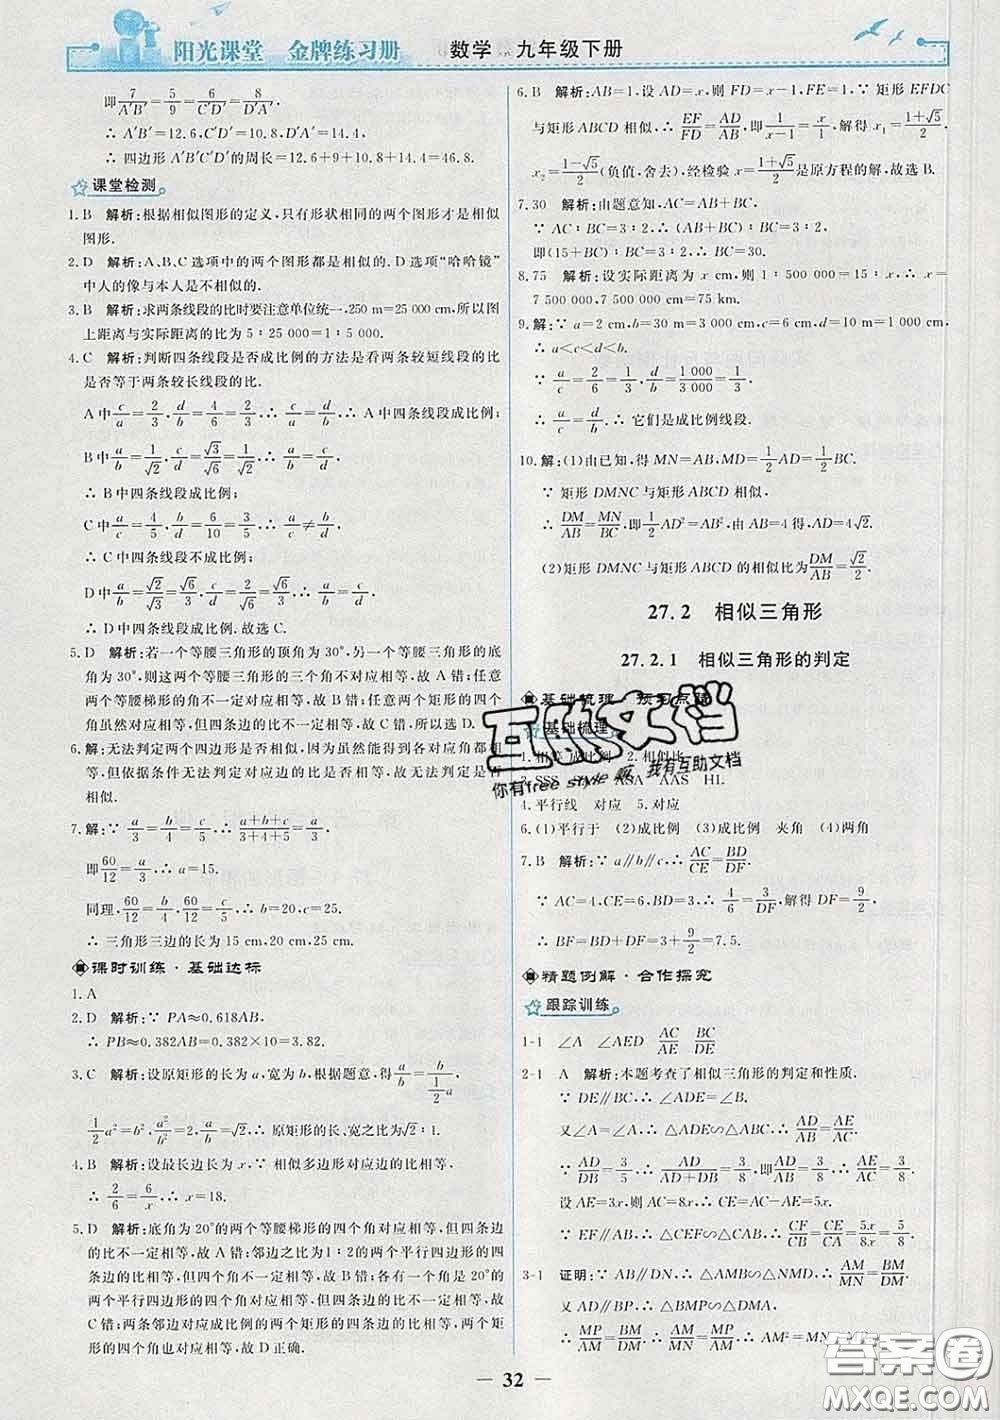 阳光课堂 金牌练习册 数学 九年级下册
即7/A′B′=5/9=6/C′D′=8/D′A′,
∴ A′B′=12.6,C′D′=10.8,D′A′=14.4,
∴ 四边形 A′B′C′D′的周长=12.6+9+10.8+14.4=46.8.
课堂检测
1.B 解析:根据相似图形的定义,只有形状相同的两个图形才是相似
图形.
2.D 解析:A、B、C选项中的两个图形都是相似的.D选项“哈哈镜”
中人的像与本人是不相似的.
3.B 解析:求两条线段的比时要注意单位统一,250 m=25 000 cm,所以图
上距离与实际距离的比为 5∶25 000=1∶5 000.
4.C 解析:判断四条线段是否成比例的方法是看两条较短线段的比
是否等于两条较长线段的比.
A中c/a=2/3,d/b=4/6=2/3,∴ c/a=d/b,∴ A中四条线段成比例;
B中a/b=1/√2,c/d=√3/√6=1/√2,∴ a/b=c/d,
∴ B中四条线段成比例;
C中a/c=4/5,b/d=6/10=3/5,∴ a/c≠b/d,
∴ C中四条线段不成比例;
D中a/b=√2/√3=√6/3,c/d=2/√6=√6/3,∴ a/b=c/d,
∴ D中四条线段成比例.故选C.
5.D 解析:若一个等腰三角形的顶角为30°,另一个等腰三角形的底
角为30°,则这两个等腰三角形的三个角不对应相等,故A错;任意
两个等腰梯形的角不一定对应相等,故B错;任意两个矩形的四个
角虽然对应相等,但四条边的比不一定相等,故C错.所以选D.
6.解:无法判定两个四边形是否相似.因为虽然能得到各对应角都相
等,但依据条件无法判定对应边的比是否相等,故无法判定是否
相似.
7.解:∵ a/3=b/4=c/5,∴ (a+b+c)/(3+4+5)=a/3,
即60/12=a/3,∴ a=15.
同理,60/12=b/4,60/12=c/5,∴ b=20,c=25.
∴ 三角形三边的长为 15 cm,20 cm,25 cm.
课时训练·基础达标
1.A
2.D 解析:∵ PA≈0.618AB,
∴ PB≈0.382AB=0.382×10=3.82.
3.C 解析:设原矩形的长为a,宽为b,根据题意,得a/b=b/(1/2 a),
1/2 a²=b²,a²/b²=2,a/b=√2,∴ 原矩形的长、宽之比为√2∶1.
4.B 解析:设最长边长为 x,∵ 相似多边形对应边的比相等,
∴ 2/6=6/x,∴ x=18.
5.D 解析:底角为20°的两个等腰梯形的四个角对应相等,但四条边
的比不一定相等,故A错;邻边之比为1∶2的两个平行四边形的四
条边的比相等,但四个角不一定相等,故B错;各有一个角是20°的
两个平行四边形的四个角对应相等,但四条边的比不一定相等,故
C错;两条邻边对应成比例的两个矩形的四条边的比相等,而矩形
的四个角也对应相等,故D正确.
6.B 解析:AB=1,设AD=x,则FD=x-1,FE=1,∵ 矩形EFDC
与矩形ABCD相似,∴ EF/FD=AD/AB,即1/(x-1)=x/1,解得 x₁=(1+√5)/2,
x₂=(1-√5)/2(负值,舍去),经检验 x=(1+√5)/2是原方程的解,故选B.
7.30 解析:由题意知,AC=AB+BC,
∵ AC∶BC=3∶2,∴ (AB+BC)∶BC=3∶2,
即(15+BC)∶BC=3∶2,∴ BC=30.
8.75 解析:设实际距离为 x cm,则 1∶1 500 000=15∶x,∴ x=
7 500 000,7 500 000 cm=75 km.
9.解:∵ a=2 cm,b=30 m=3 000 cm,c=6 cm,d=10 m=1 000 cm,
∴ a<c<d<b.
∵ a/c=2/6=1/3,d/b=1 000/3 000=1/3,
∴ a/c=d/b,∴ 它们是成比例线段.
10.解:(1)由已知,得MN=AB,MD=1/2 AD=1/2 BC.
∵ 矩形DMNC与矩形ABCD相似,
∴ DM/AB=MN/BC,即1/2 AD²=AB²,由AB=4得,AD=4√2.
(2)矩形DMNC与矩形ABCD的相似比为DM/AB=√2/2.
27.2 相似三角形
27.2.1 相似三角形的判定
基础梳理·预习点睛
基础梳理
1.相等 成比例 2.相似比
3.SSS SAS ASA AAS HL
4.平行线 对应 5.对应
6.(1)平行于 (2)成比例 (3)成比例 夹角 (4)两角
7.B 解析:∵ a∥b∥c,∴ AC/CE=BD/DF,即4/6=3/DF,解得 DF=9/2,
∴ BF=BD+DF=3+9/2=7.5.
精题例解·合作探究
跟踪训练
1-1 ∠A ∠AED AC/AE BC/DE
2-1 A 解析:本题考查了相似三角形的判定和性质.
∵ DE∥BC,∴ ∠ADE=∠B.
又∠A=∠A,∴ △ADE∽△ABC,∴ AD/AB=AE/AC.
∵ AD/DB=3/5,∴ AD/(AD+DB)=3/8,即AD/AB=3/8,∴ AE/AC=3/8.
设AE=3x,则AC=8x,∴ CE=5x.
∵ EF∥AB,∴ △CEF∽△CAB,∴ CF/CB=CE/CA=5x/8x=5/8.
3-1 证明:∵ AB∥DN,∴ △AMB∽△NMD,∴ AM/MN=BM/DM.
又AD∥BP,∴ △BMP∽△DMA,
∴ MP/AM=BM/DM,∴ AM/MN=MP/AM,∴ AM²=MN·MP.
互助文档
你有free style 吗, 我有互助文档
答案圈
MXQE.COM
32